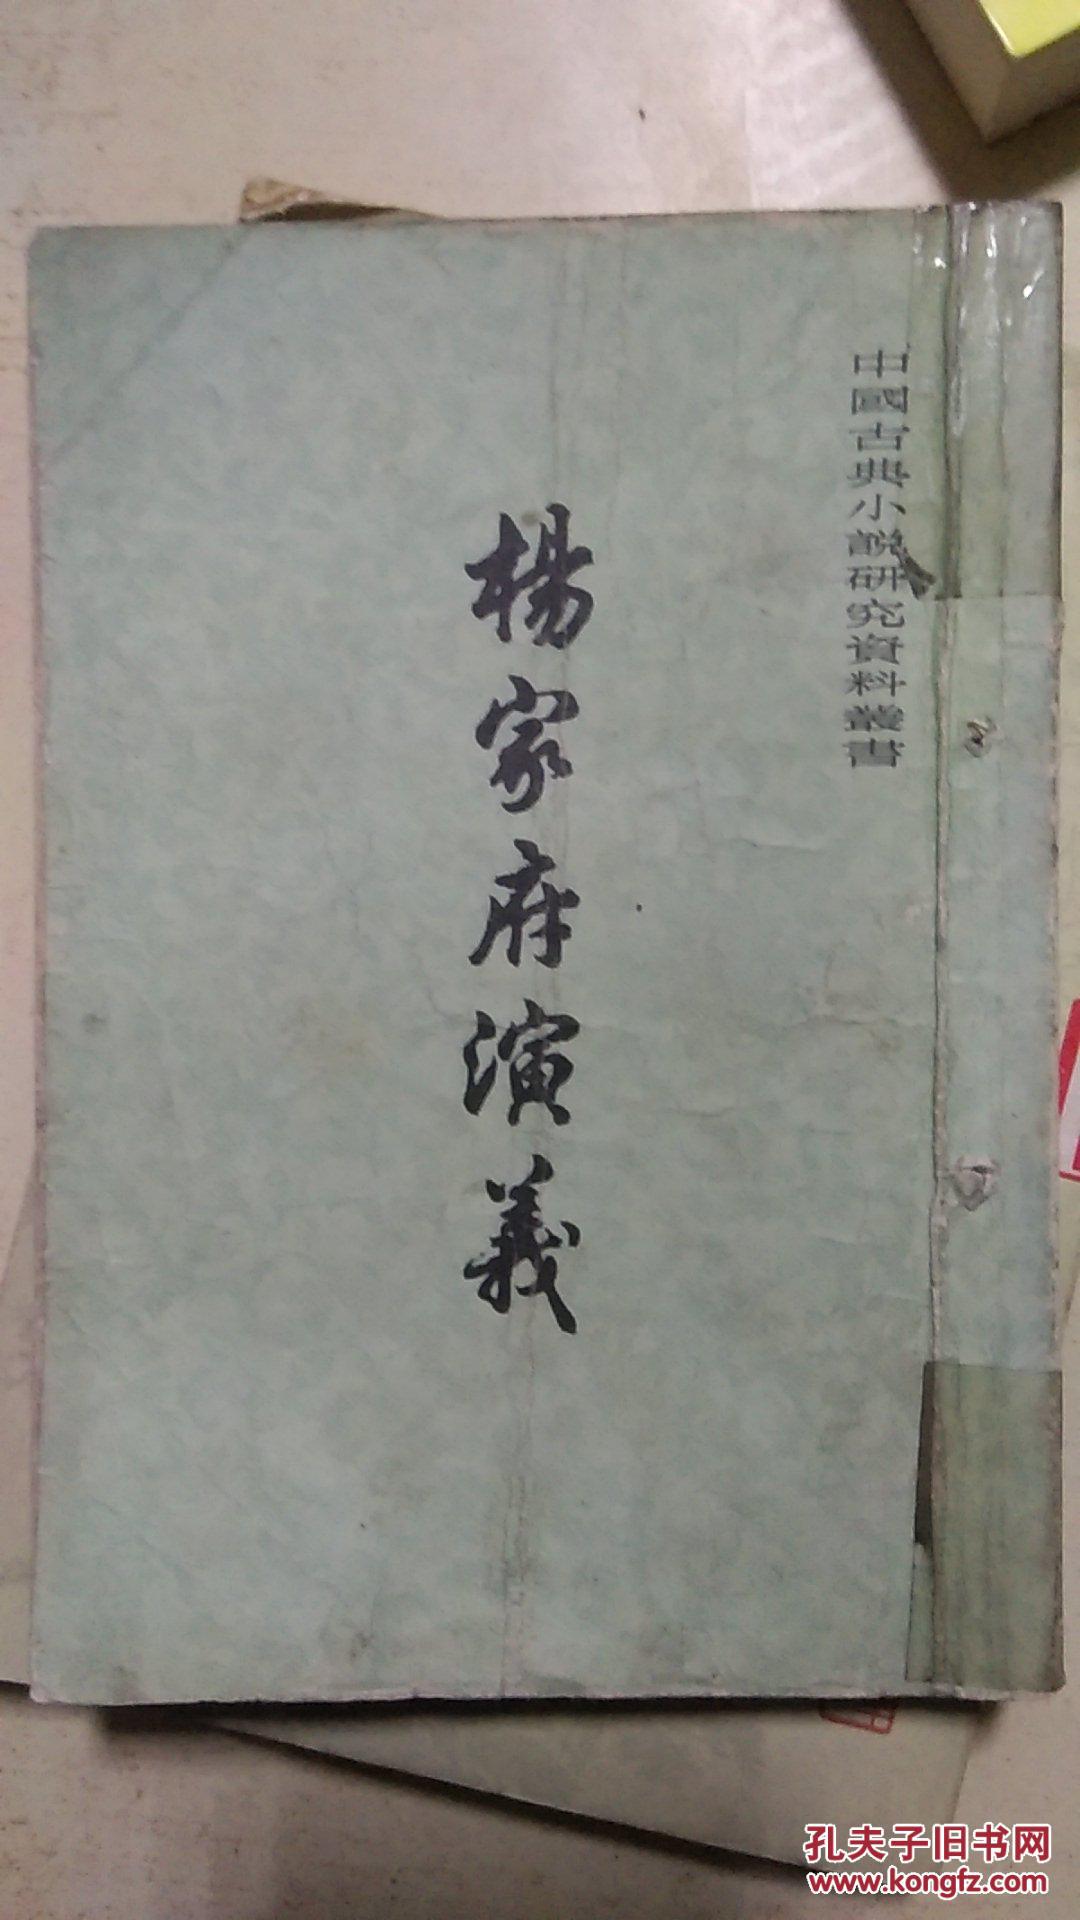 中國古典小說研究資料叢書
楊家府演義
孔夫子旧书网
www.kongfz.com